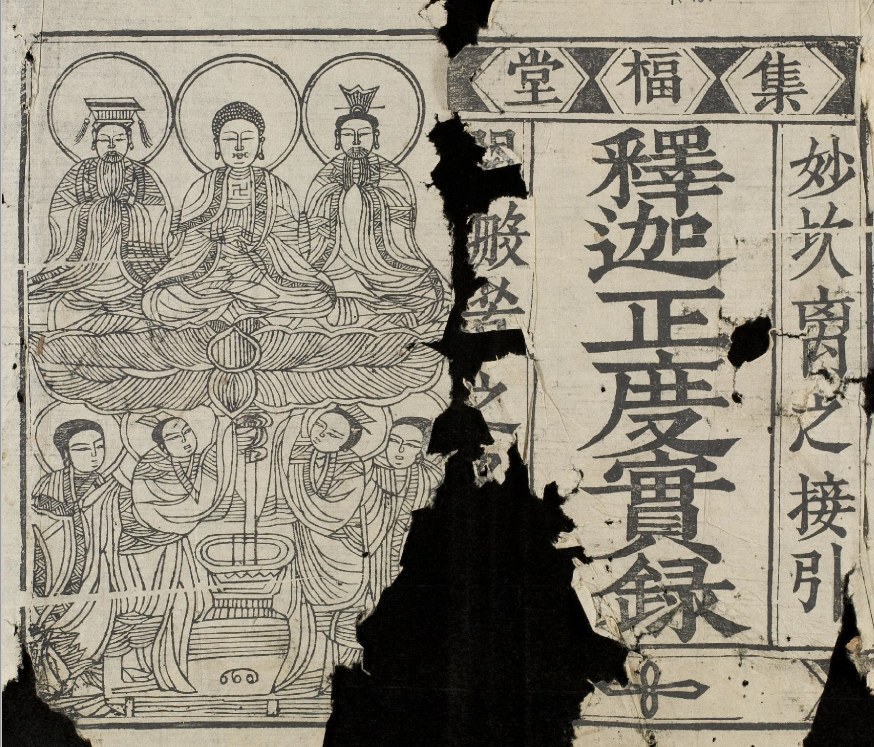 集楅堂
妙坎离之接引
釋迦正度實録
般若之